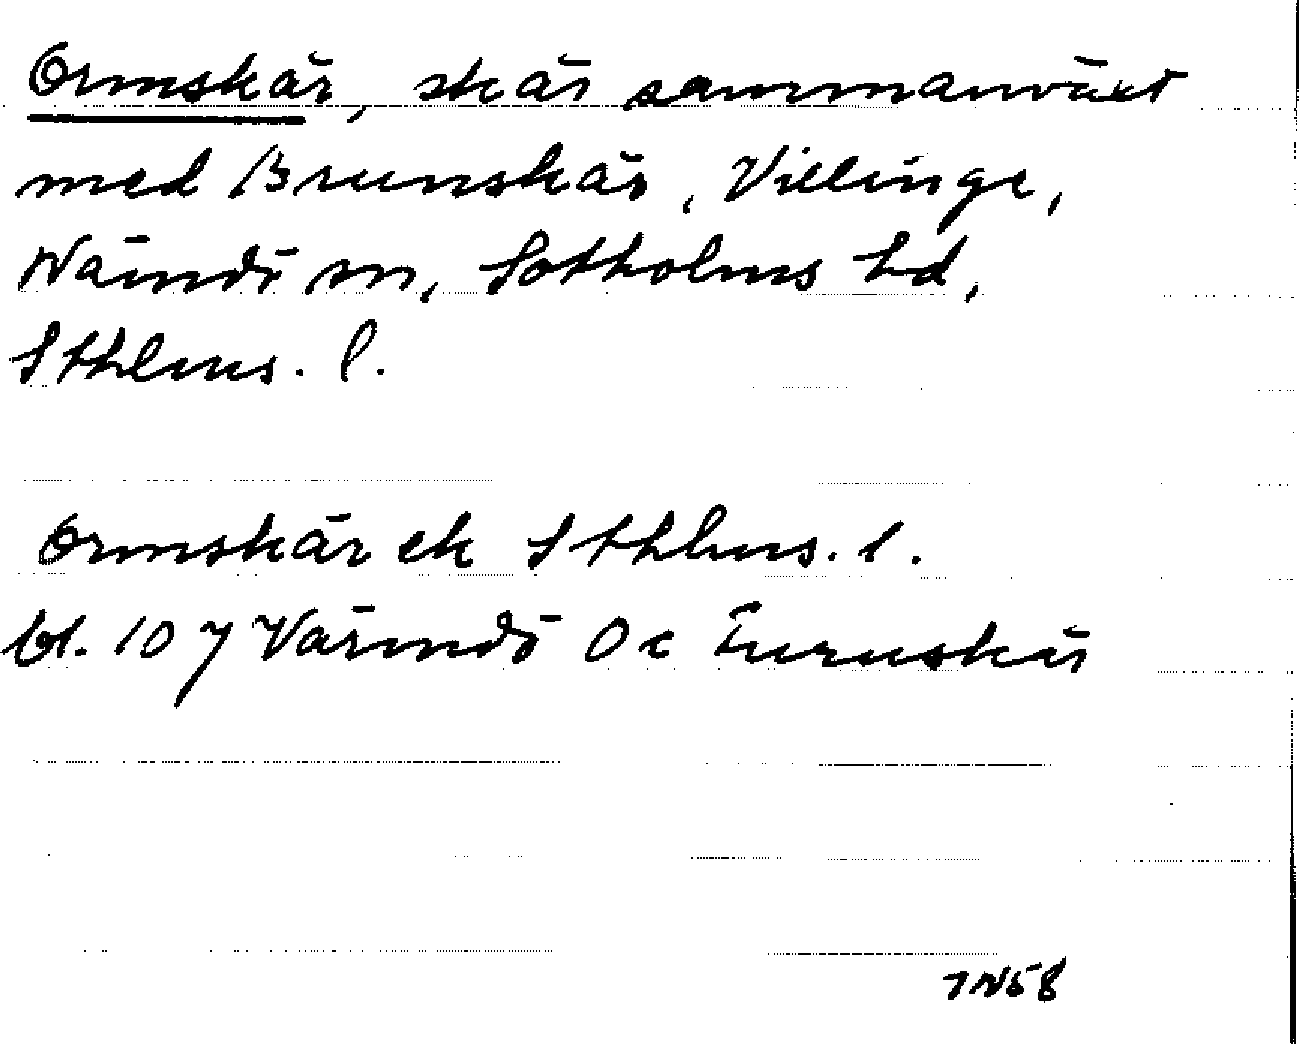 Ormskär, skär sammanväxt
med Brunskär, Villinge,
Wärmdö sn, Sotholms hd,
Sthlms. l.
Ormskär ek Sthlms. l.
bl. 107 Värmdö Oc
IN58